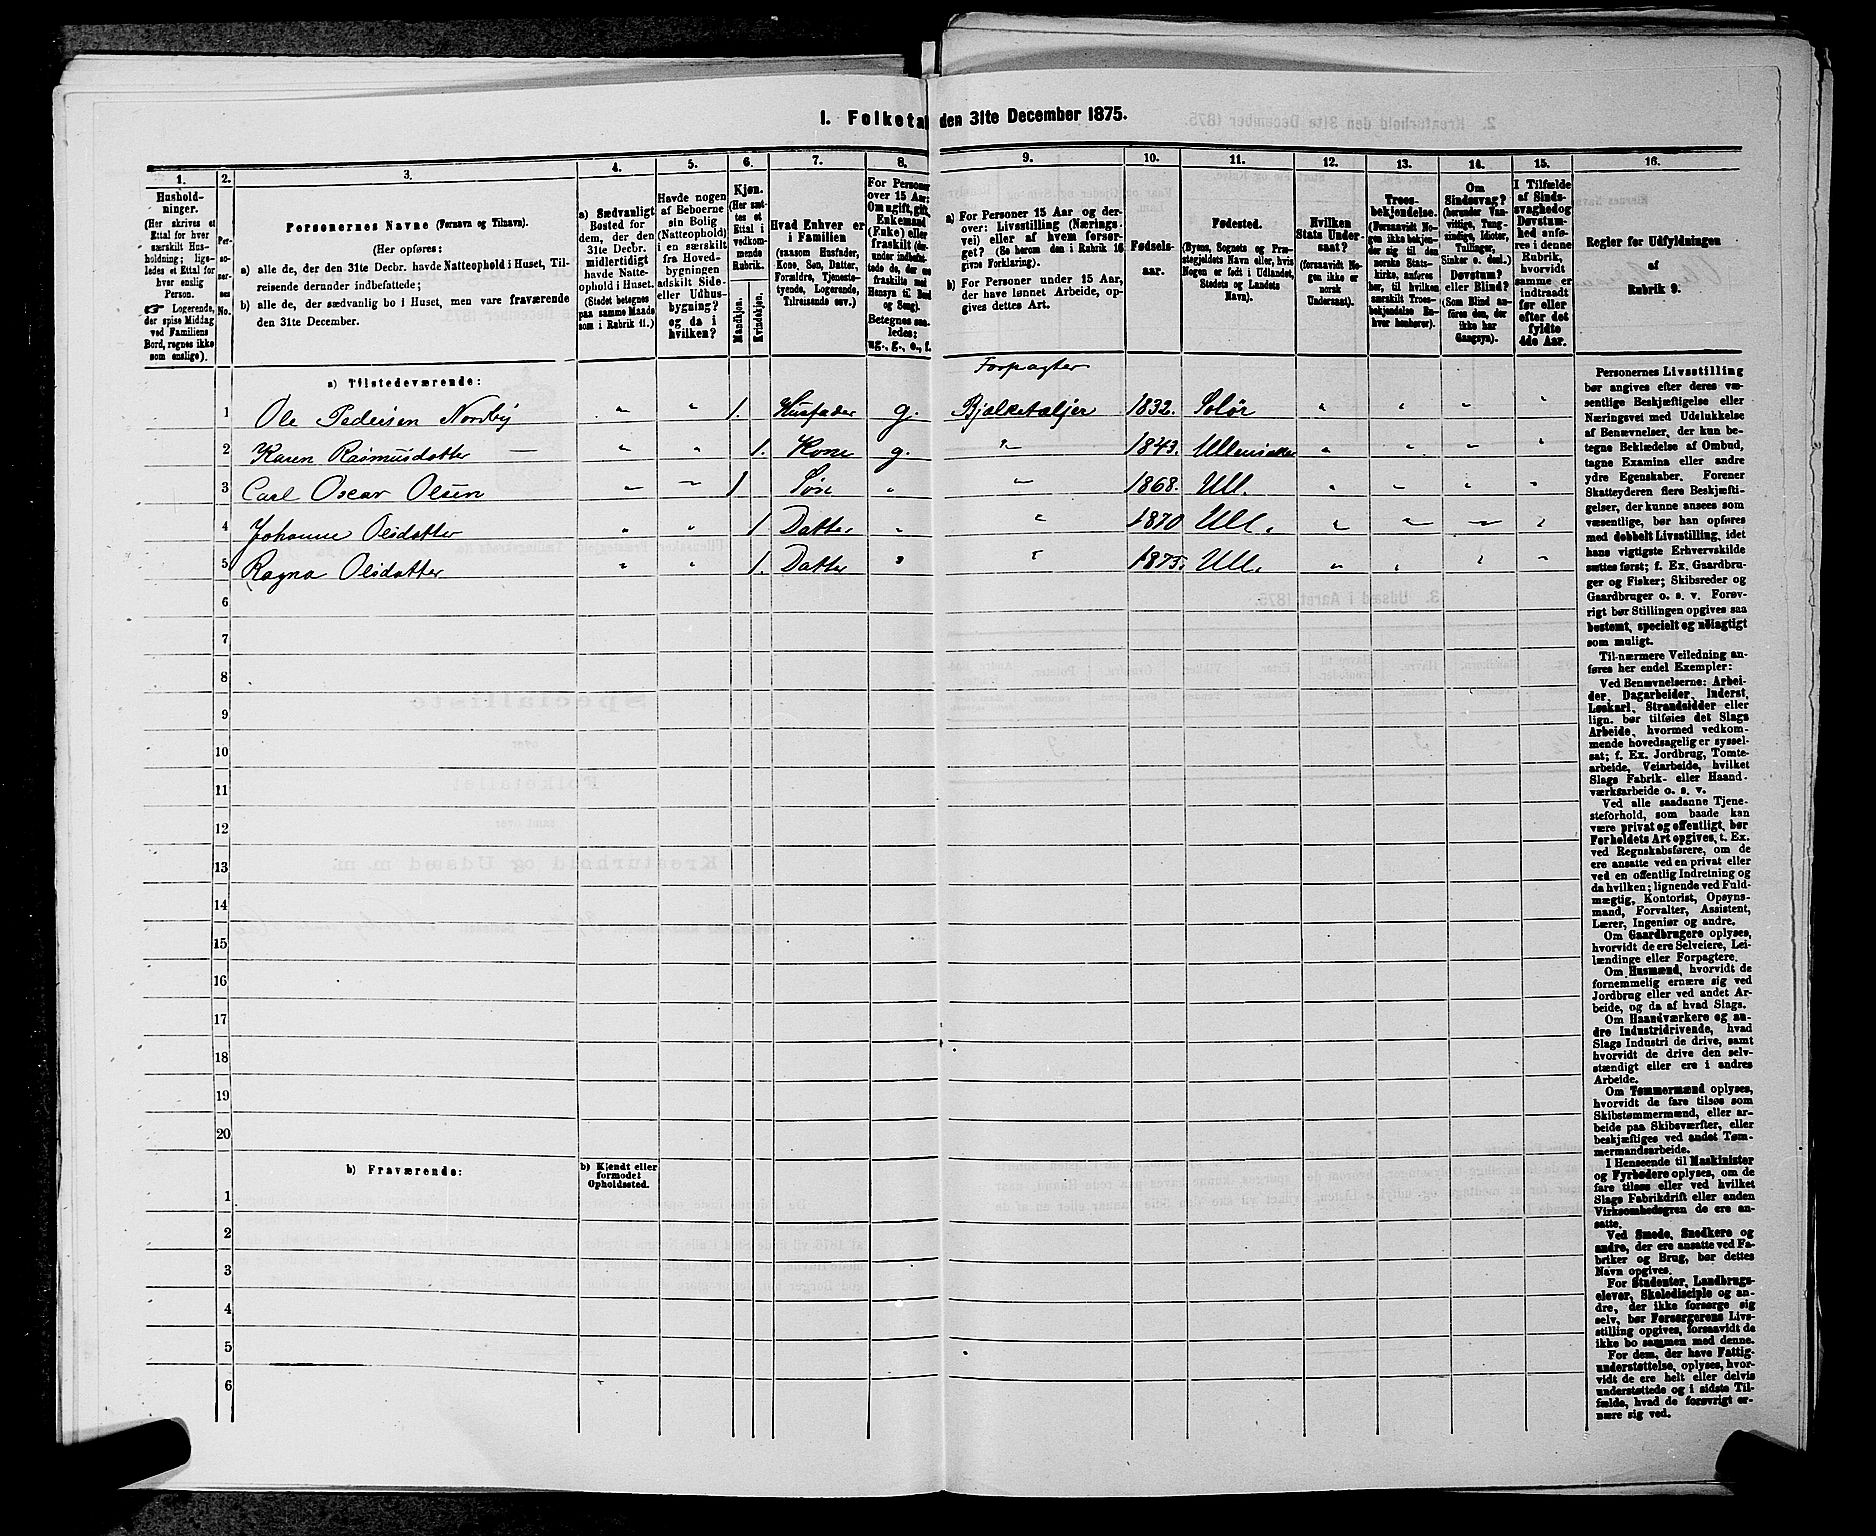 I. Folketal den 31te December 1875.
1.
2.
3.
4.
5.
6.
7.
8.
9.
10.
11.
12.
13.
14.
15.
16.
Hushold-
ninger.
(Her skrives et
Ettal for hver
særskilt Hus-
holdning; lige-
ledes et Ettal for
hver enslig
Person.
☞ Logerende,
der spise Middag
ved Familiens
Bord, regnes ikke
som enslige).
Per-
so-
ner-
nes
No.
Personernes Navne (Fornavn og Tilnavn).
(Her opføres:
a) alle de, der den 31te Decbr. havde Natteophold i Huset, Til-
reisende derunder indbefattede;
b) alle de, der sædvanlig bo i Huset, men vare fraværende
den 31te December.
a) Sædvanligt
Bosted for
dem, der den
31te Decbr.
midlertidigt
havde Natte-
ophold i Huset.
(Stedet betegnes
paa samme Maade
som i Rubrik 11.)
Havde nogen
af Beboerne
sin Bolig
(Natteophold)
i en særskilt
fra Hoved-
bygningen
adskilt Side-
eller Udhus-
bygning?
og da i
hvilken?
Kjøn.
(Her sæt-
tes et
Ettal i
vedkom-
mende
Rubrik.
Mandkjøn.
Kvindekjøn.
Hvad Enhver er
i Familien
(saasom Husfader,
Kone, Søn, Datter,
Forældre, Tjeneste-
tyende, Logerende,
Tilreisende osv.)
For Personer
over 15 Aar:
Om ugift, gift,
Enkemand
(Enke) eller
fraskilt (der-
under indbefat-
tede de, der ere
fraskilte med
Hensyn til Bord
og Seng).
Betegnes saa-
ledes:
ug., g., e., f.
a) For Personer 15 Aar og der-
over: Livsstilling (Nærings-
vei) eller af hvem forsør-
get? (Se herom den i Rubrik 16
givne Forklaring).
b) For Personer under 15 Aar,
der have lønnet Arbeide, op-
gives dettes Art.
Fødsels-
aar.
Fødested.
(Byens, Sognets og Præ-
stegjeldets Navn eller, hvis
Nogen er født i Udlandet,
Stedets og Landets
Navn).
Hvilken
Stats Under-
saat?
(forsaavidt No-
gen ikke er
norsk
Undersaat).
Troes-
bekjendelse.
(Forsaavidt No-
gen ikke bekjen-
der sig til den
norske Stats-
kirke, anføres
her, til hvilken
særskilt Troes-
bekjendelse En-
hver henhører).
Om
Sindssvag?
(herunder Van-
vittige, Tung-
sindige, Idioter,
Tullinger,
Sinker o. desl.)
Døvstum?
eller Blind?
(Som Blind an-
føres den, der
ikke har
Gangsyn).
I Tilfælde
af Sinds-
svaghed og
Døvstum-
hed anfø-
res i denne
Rubrik,
hvorvidt
samme er
indtraadt
før eller
efter det
fyldte
4de Aar.
Regler for Udfyldningen
af
Rubrik 9.
a) Tilstedeværende:
Forpagter
1 Ole Pedersen Nordby " " 1. Husfader g. Bjælketæljer 1832. Solør " " " "
2 Karen Rasmusdatter — " " 1. Kone g. " 1843. Ullensaker " " " "
3 Carl Oscar Olsen " " 1 Søn " " 1868. Ull. " " " "
4 Johanne Olsdatter " " 1 Datter " " 1870 Ull. " " " "
5 Ragna Olsdatter " " 1. Datter " " 1875. Ull. " " " "
6
7
8
9
10
11
12
13
14
15
16
17
18
19
20
b) Fraværende:
b) Kjendt eller
formodet
Opholdssted.
1
2
3
4
5
6
Personernes Livsstilling
bør angives efter deres væ-
sentlige Beskjæftigelse eller
Næringsvei med Udelukkelse
af Benævnelser, der kun be-
tegne Beklædelse af Ombud,
tagne Examina eller andre
ydre Egenskaber. Forener
Skatteyderen flere Beskjæfti-
gelser, der kunne ansees som
væsentlige, bør han opføres
med dobbelt Livsstilling, idet
hans vigtigste Erhvervskilde
sættes først; f. Ex. Gaardbru-
ger og Fisker; Skibsreder og
Gaardbruger o. s. v. Forøv-
rigt bør Stillingen opgives saa
bestemt, specielt og nøiagtigt
som muligt.
Til nærmere Veiledning an-
føres her endel Exempler:
Ved Benævnelserne: Arbei-
der, Dagarbeider, Inderst,
Løskarl, Strandsidder eller
lign. bør tilføies det Slags
Arbeide, hvormed vedkom-
mende hovedsagelig er syssel-
sat; f. Ex. Jordbrug, Tomte-
arbeide, Veiarbeide, hvilket
Slags Fabrik- eller Haand-
værksarbeide o. s. v.
Ved alle saadanne Tjene-
steforhold, som baade kan
være privat og offentligt, bør
Forholdets Art opgives, t. Ex.
ved Regnskabsførere, om de
ere ansatte ved en privat eller
ved en offentlig Indretning og
da hvilken; lignende ved Fuld-
mægtig, Kontorist, Opsyns-
mand, Forvalter, Assistent,
Lærer, Ingeniør og andre.
Om Gaardbrugere oplyses,
hvorvidt de ere Selveiere, Lei-
lændinge eller Forpagtere.
Om Husmænd, hvorvidt de
fornemmelig ernære sig ved
Jordbrug eller ved andet Ar-
beide, og da af hvad Slags.
Om Haandværkere og an-
dre Industridrivende, hvad
Slags Industri de drive, samt
hvorvidt de drive den selv-
stændigt eller ere i andres
Arbeide.
Om Tømmermænd oplyses,
hvorvidt de fare tilsøs som
Skibstømmermænd, eller ar-
beide paa Skibsværfter, eller
beskjæftiges ved andet Tøm-
mermandsarbeide.
I Henseende til Maskinister
og Fyrbødere oplyses, om de
fare tilsøs eller ved hvilket
Slags Fabrikdrift eller anden
Virksomhedsgren de ere an-
satte.
Ved Smede, Snedkere og
andre, der ere ansatte ved Fa-
briker og Brug, bør dettes
Navn opgives.
For Studenter, Landbrugs-
elever, Skoledisciple og an-
dre, der ikke forsørge sig
selv, bør Forsørgerens Livs-
stilling opgives, forsaavidt de
ikke bo sammen med denne.
For dem, der have Fattig-
understøttelse, oplyses, hvor-
vidt de ere helt eller delvis
understøttede og i sidste Til-
fælde, hvad de forøvrigt er-
nære sig ved.